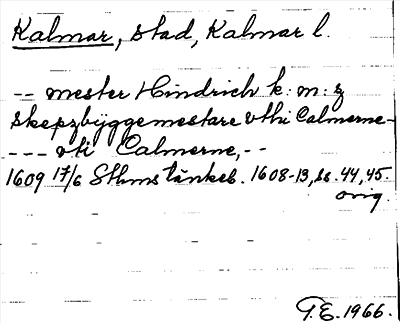 Kalmar, stad, Kalmar l.
-- mester Hindrich k: m: z
skepzbÿggemestare vthi Calmerne-
--- vti Calmerne, --
1609 17/6 Sthms tänkeb. 1608-13, ss. 44, 45.
orig.
T.E. 1966.